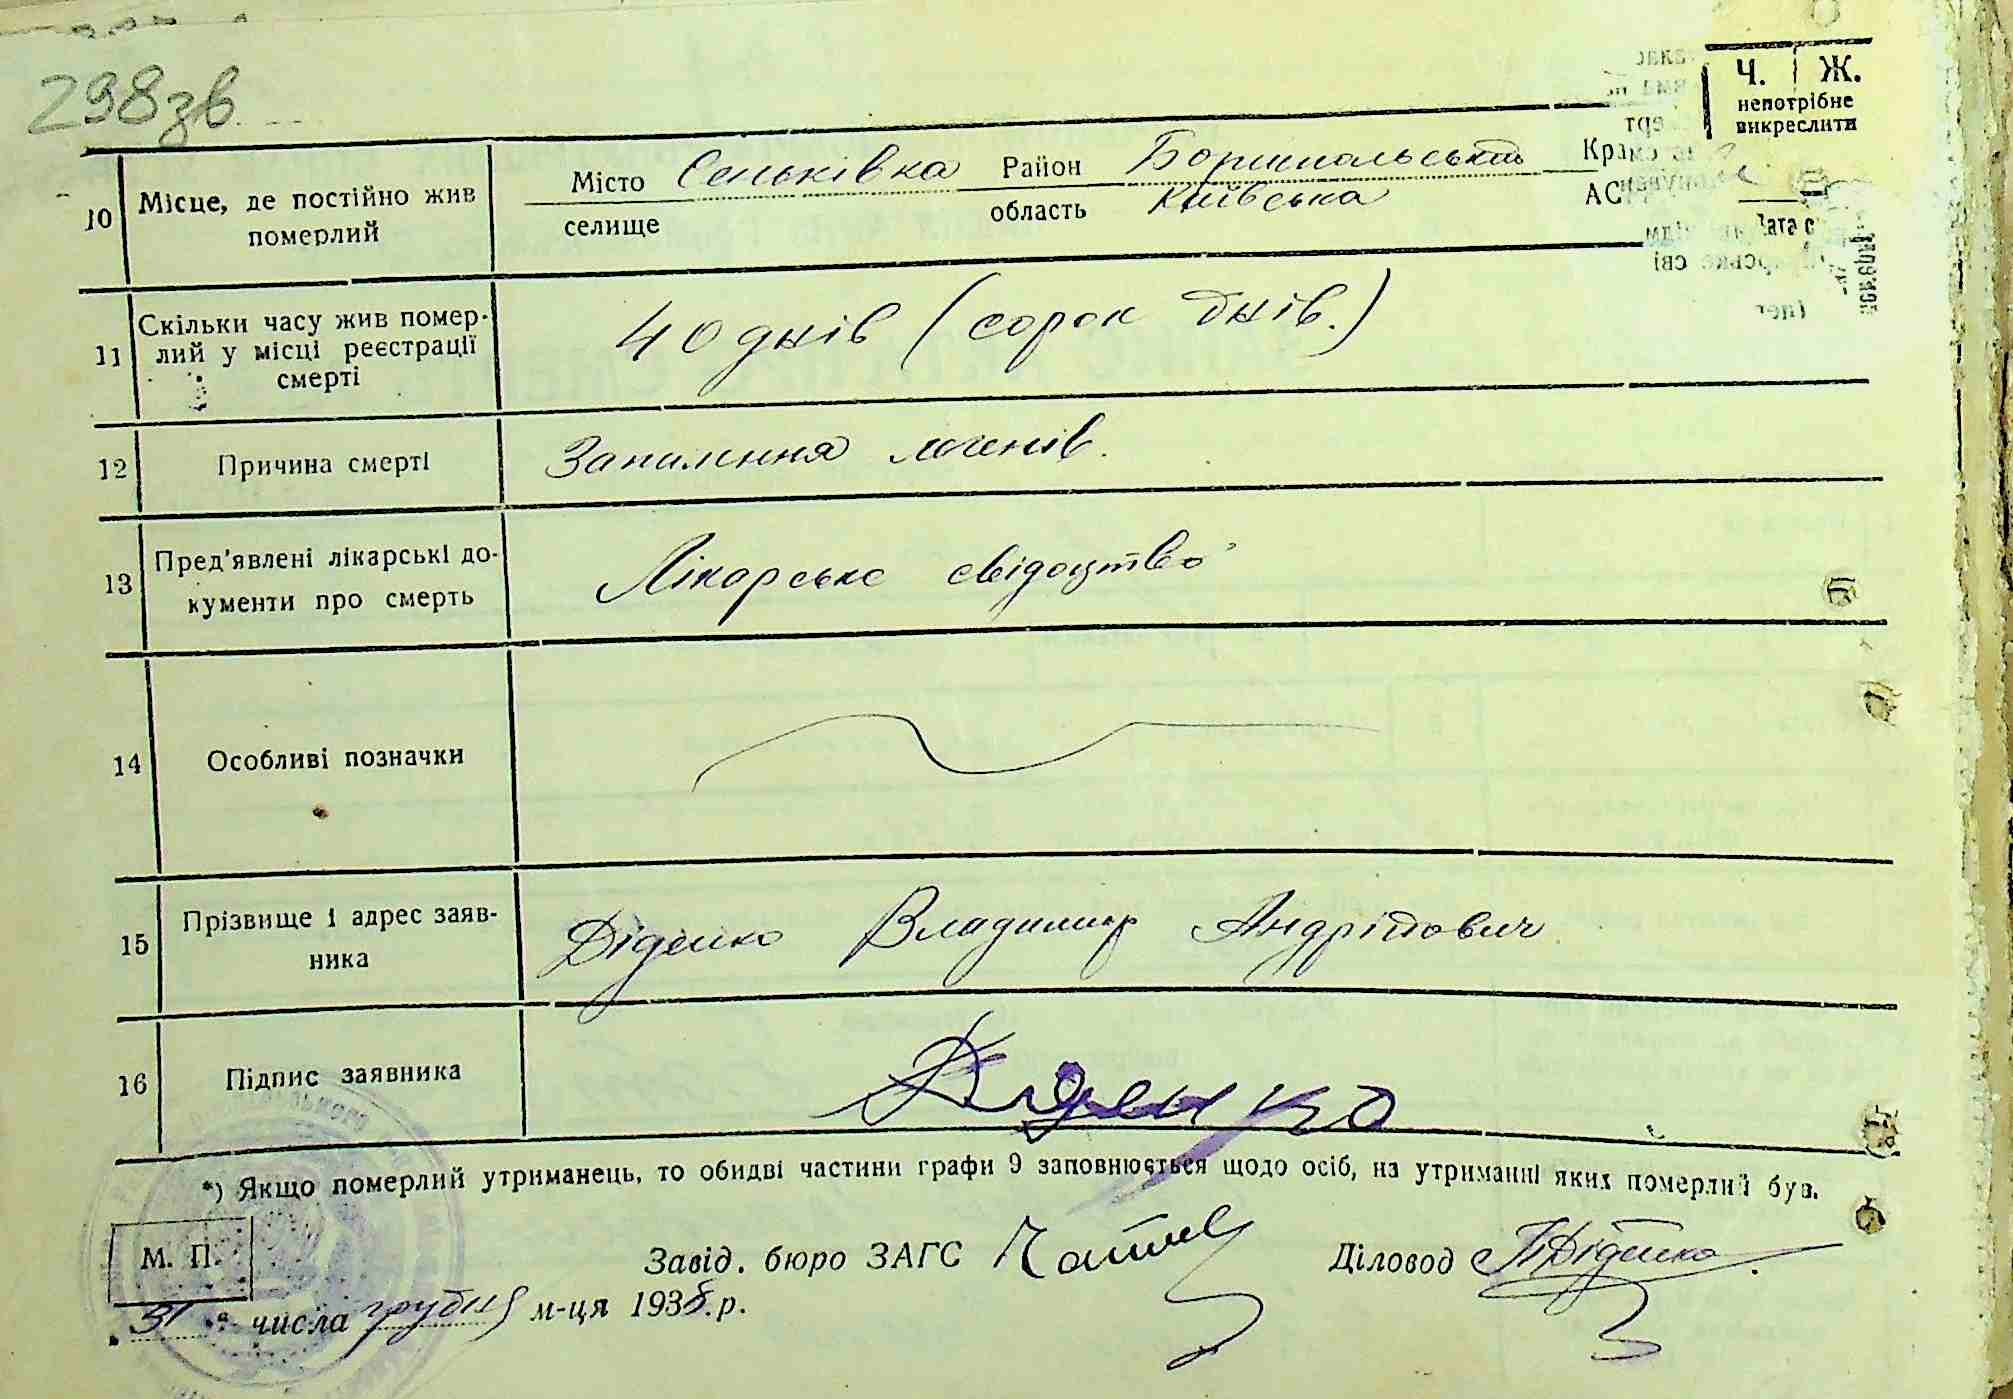 298зв
Ч. Ж.
непотрібне
викреслити
10 Місце, де постійно жив
померлий
Місто Сеньківка Район Бориспольський
селище область Київська АС
11 Скільки часу жив помер-
лий у місці реєстрації
смерті
40 днів (сорок днів.)
12 Причина смерті Запалення легенів.
13 Пред'явлені лікарські до-
кументи про смерть
Лікарське свідоцтво
14 Особливі позначки
15 Прізвище і адрес заяв-
ника
Діденко Владимир Андрійович
16 Підпис заявника Діденко
*) Якщо померлий утриманець, то обидві частини графи 9 заповнюється щодо осіб, на утриманні яких померлий був.
М. П. Завід. бюро ЗАГС Діловод Діденко
31 числа грудня м-ця 1938.р.